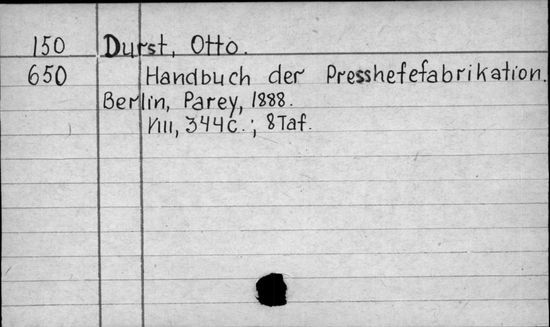 150 Durst, Otto.
650 Handbuch der Presshefefabrikation.
Berlin, Parey, 1888.
VIII, 344c.; 8Taf.